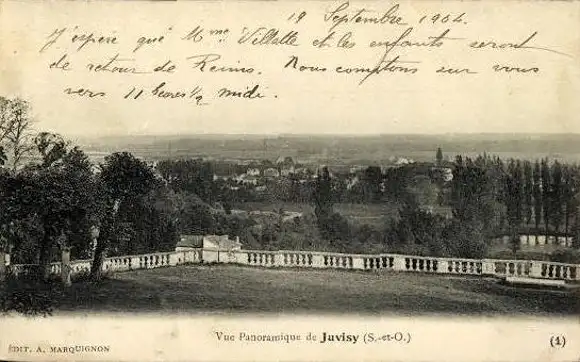 19 Septembre 1904.
J'espère que Mme Villatte et les enfants seront
de retour de Reims. Nous comptons sur vous
vers 11 heures ½ midi.
Vue Panoramique de Juvisy (S.-et-O.)
ÉDIT. A. MARQUIGNON
(1)